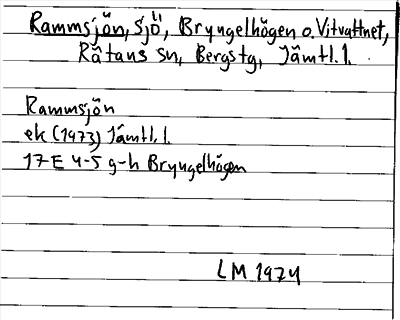 Rammsjön, Sjö, Bryngelhögen o. Vitvattnet,
Rätans sn, Bergs tg, Jämtl. l.
Rammsjön
ek (1973) Jämtl. l.
17 E 4-5 g-h Bryngelhögen
LM 1974